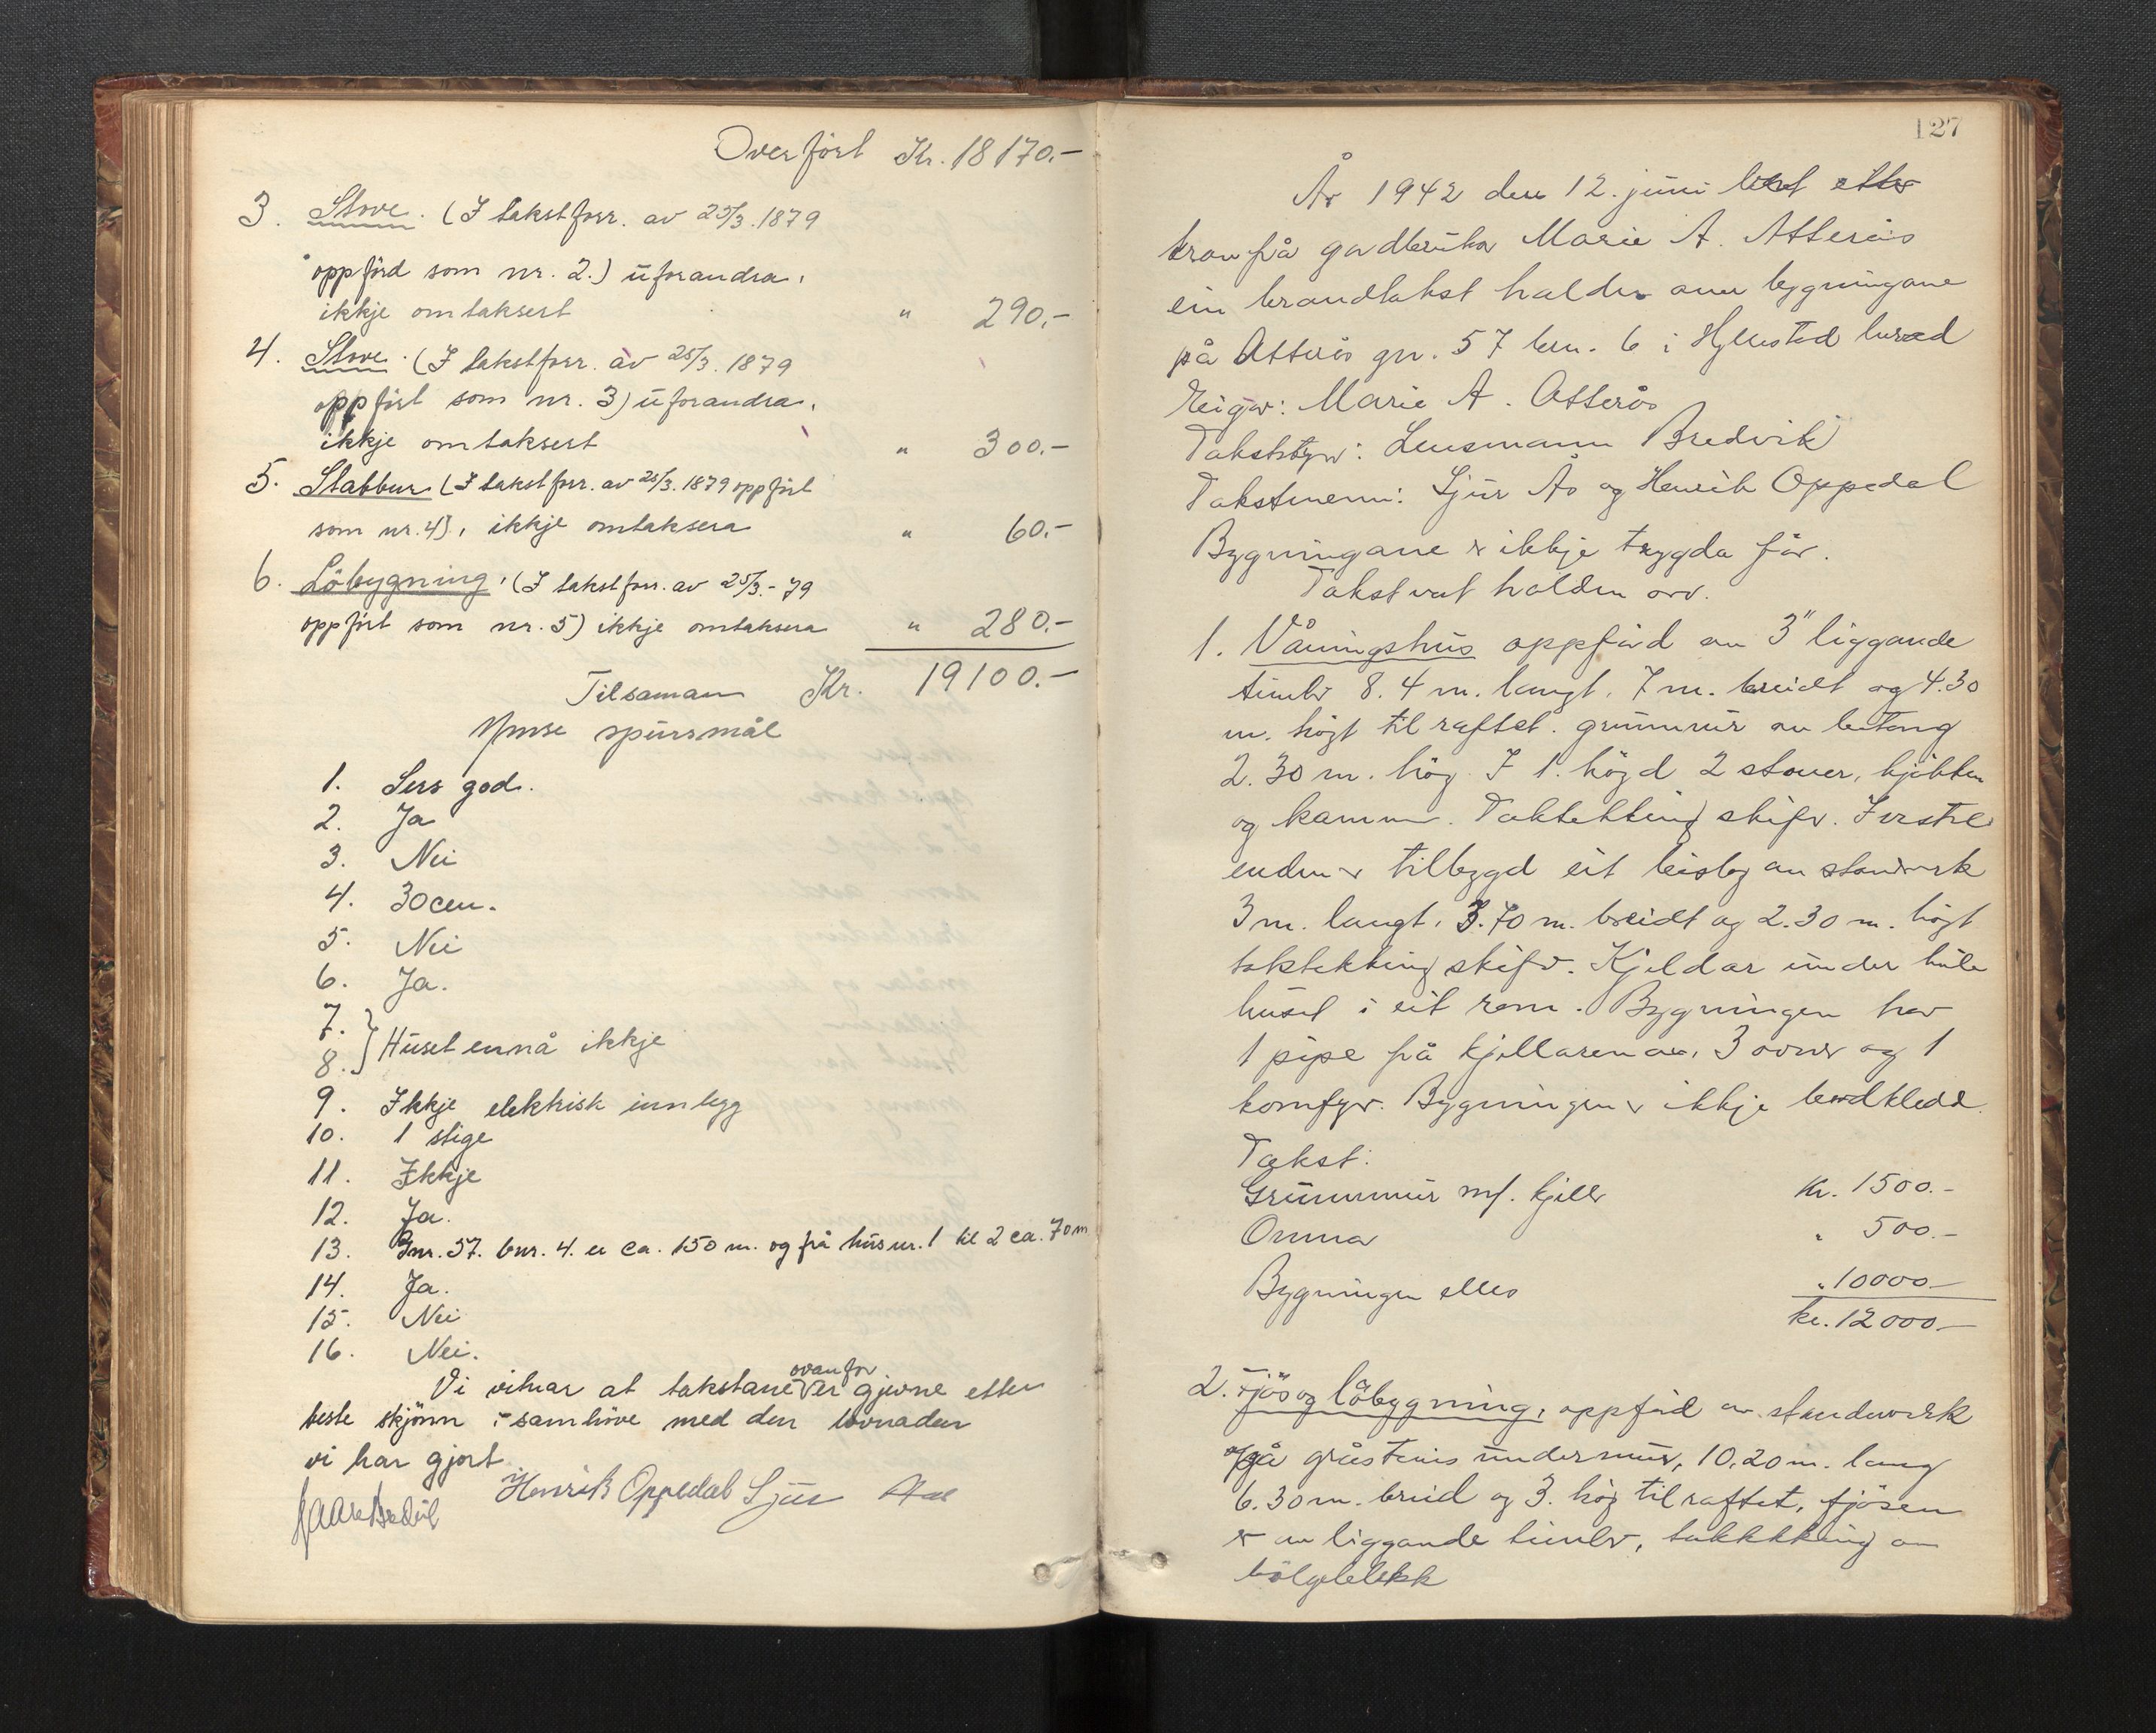 Overført Kr. 18170.-
3. Stove. (I takstforr. av 25/3.1879
oppförd som nr. 2.) uforandra,
ikkje omtaksert " 290.-
4. Stove. (I takstforr. av 25/3. 1879
oppfört som nr. 3) uforandra,
ikkje omtaksert " 300.-
5. Stabbur (I takstforr. av 25/3. 1879 oppfört
som nr. 4), ikkje omtaksera " 60.-
6. Löbygning, (I takstforr. av 25/3.-79
oppfört som nr. 5) ikkje omtaksera " 280.-
Tilsaman Kr. 19100.-
Ymse spursmål
1. Sers god.
2. Ja
3. Nei
4. 30 cm.
5. Nei
6. Ja.
7.
8. } Huset ennå ikkje
9. Ikkje elektrisk innlegg
10. 1 stige
11. Ikkje
12. Ja.
13. Gnr. 57. bnr. 4. er ca. 150 m. og frå hus nr. 1 til 2 ca. 70 m
14. Ja.
15. Nei
16. Nei.
Vi vitnar at takstane ovanfor er gjevne etter
beste skjönn i samhöve med den lovnaden
vi har gjort.
Henrik Oppedal Sjur Aas
127
År 1942 den 12. juni vert etter
krav frå gardbrukar Marie A. Atterås
ein brandtakst halden over bygningane
på Atterås gnr. 57 bnr. 6 i Hyllestad herad
Eigar: Marie A. Atterås
Takststyrar: Lensmann Bredvik
Takstmenn: Sjur Ås og Henrik Oppedal
Bygningane er ikkje trygda för.
Takst vart halden over.
1. Våningshus oppförd av 3" liggande
timbr 8.4 m. langt, 7 m. breidt og 4.30
m. högt til raftet. grunnmur av betong
2.30 m. hög. I 1. högd 2 stover, kjökken
og kammer. Taktekking skifer. I vestre
enden er tilbygd eit bislag av standverk
3 m. langt, 3.70 m. breidt og 2.30 m. högt
taktekking skifer. Kjeldar under heile
huset i eit rom. Bygningen har
1 pipe frå kjellaren av, 3 ovner og 1
komfyr. Bygningen er ikkje bordkledd.
Takst:
Grunnmur m/. kjeller Kr. 1500.-
Omna " 500.-
Bygningen elles " 10000.-
kr. 12000.-
2. Fjös og löbygning, oppförd av standverk
på gråsteins undermur, 10.20 m. lang
6.30 m. breid og 3. hög til raftet, fjösen
er av liggande timbr, taktekking av
bölgeblekk